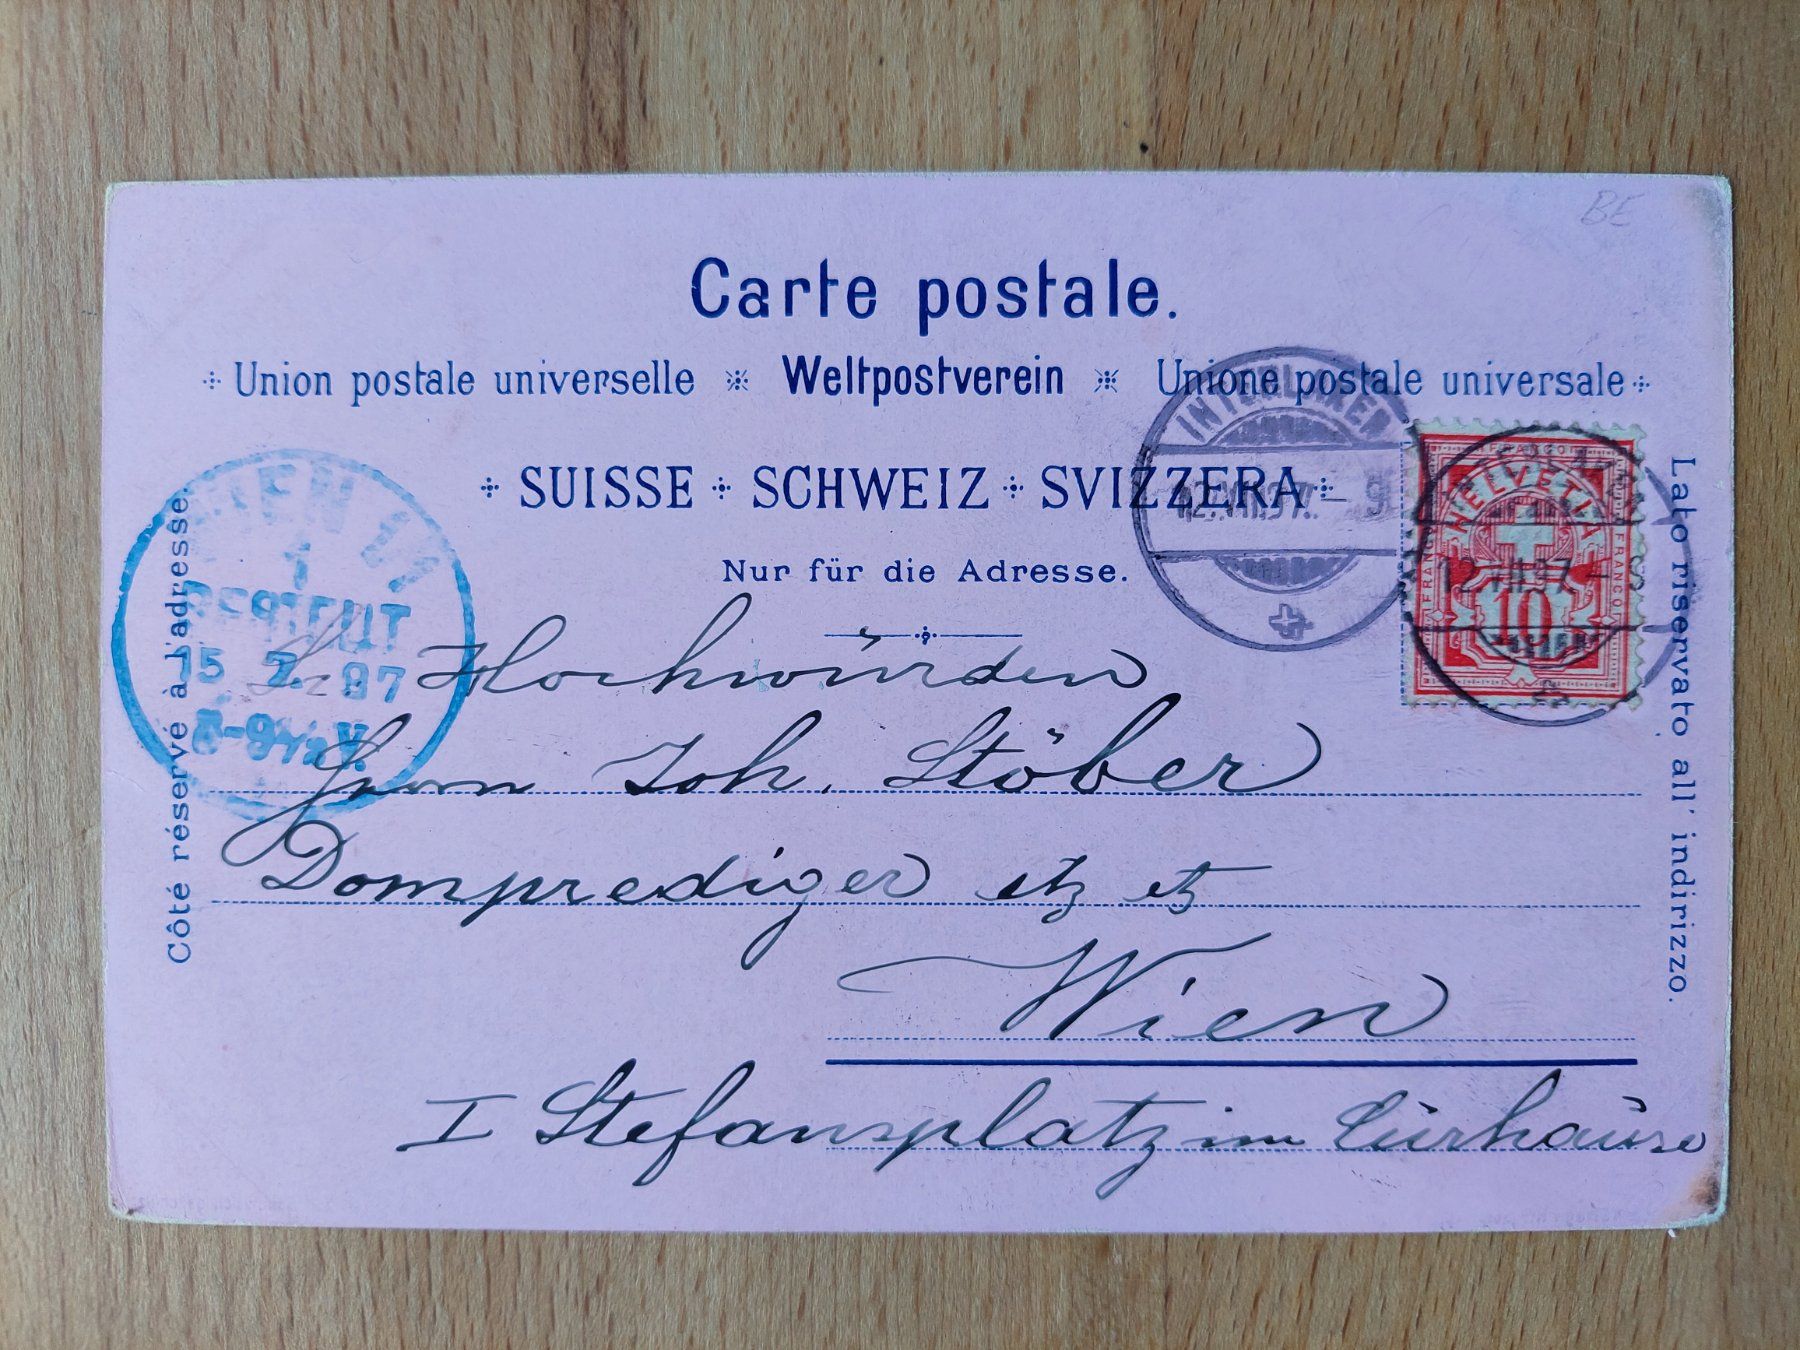 BE
Carte postale.
Union postale universelle Weltpostverein Unione postale universale
SUISSE SCHWEIZ SVIZZERA
Nur für die Adresse.
Côté réservé à l'adresse.
Lato riservato all' indirizzo.
INTERLAKEN
12.VII.97. - 9
FRANCO
HELVETIA
FRANCO
FRANCO
10
12.VII.97. - 9
WIEN 1/1
1
BESTELLT
15 7. 97
8-9½ V.
Sr. Hochwürden
Herrn Joh. Stöber
Domprediger etz etz
Wien
I Stefansplatz im Curhause